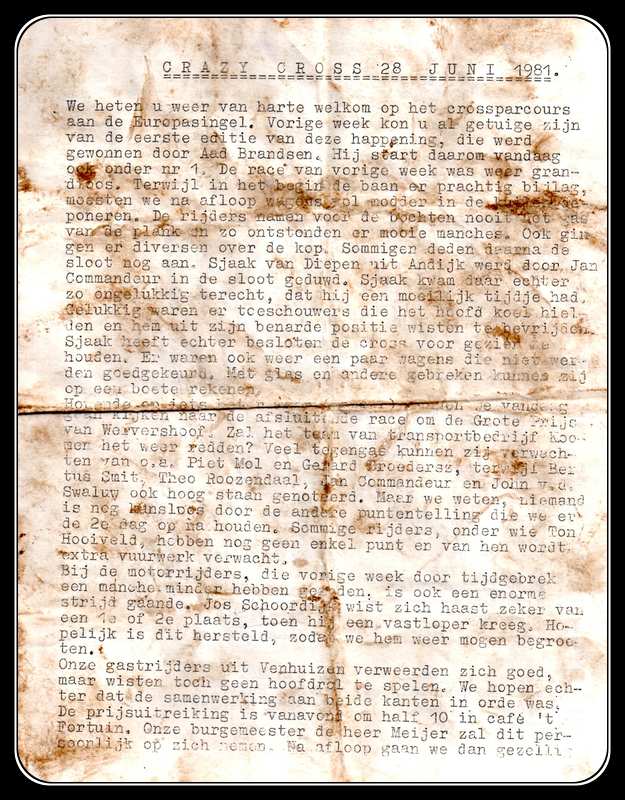 CRAZY CROSS 28 JUNI 1981.
We heten u weer van harte welkom op het crossparcours
aan de Europasingel. Vorige week kon u al getuige zijn
van de eerste editie van deze happening, die werd
gewonnen door Aad Brandsen. Hij start daarom vandaag
ook onder nr 1. De race van vorige week was weer gran-
dioos. Terwijl in het begin de baan er prachtig bijlag,
moesten we na afloop wagens vol modder in de
poneren. De rijders namen voor de bochten nooit het gas
van de plank en zo ontstonden er mooie manches. Ook gin
gen er diversen over de kop. Sommigen deden daarna de
sloot nog aan. Sjaak van Diepen uit Andijk werd door Jan
Commandeur in de sloot geduwd. Sjaak kwam daar echter
zo ongelukkig terecht, dat hij een moeilijk tijdje had.
Gelukkig waren er toeschouwers die het hoofd koel hiel-
den en hem uit zijn benarde positie wisten te bevrijden.
Sjaak heeft echter besloten de cross voor gezien te
houden. Er waren ook weer een paar wagens die niet wer-
den goedgekeurd. Met glas en andere gebreken kunnen zij
op een boete rekenen.
gaan kijken naar de afsluitende race om de Grote Prijs
van Wervershoof. Zal het team van transportbedrijf Koo-
men het weer redden? Veel tegengas kunnen zij verwach-
ten van o.a. Piet Mol en Gerard Broedersz, terwijl Ber-
tus Smit, Theo Roozendaal, Jan Commandeur en John v.d.
Swaluw ook hoog staan genoteerd. Maar we weten, niemand
is nog kansloos door de andere puntentelling die we er
de 2e dag op na houden. Sommige rijders, onder wie Ton
Hooiveld, hebben nog geen enkel punt en van hen wordt
extra vuurwerk verwacht.
Bij de motorrijders, die vorige week door tijdgebrek
een manche minder hebben gereden, is ook een enorme
strijd gaande. Jos Schoordijk wist zich haast zeker van
een 1e of 2e plaats, toen hij een vastloper kreeg. Ho-
pelijk is dit hersteld, zodat we hem weer mogen begroe-
ten.
Onze gastrijders uit Venhuizen verweerden zich goed,
maar wisten toch geen hoofdrol te spelen. We hopen ech-
ter dat de samenwerking aan beide kanten in orde was.
De prijsuitreiking is vanavond om half 10 in café 't
Fortuin. Onze burgemeester de heer Meijer zal dit per-
soonlijk op zich nemen. Na afloop gaan we dan gezellig